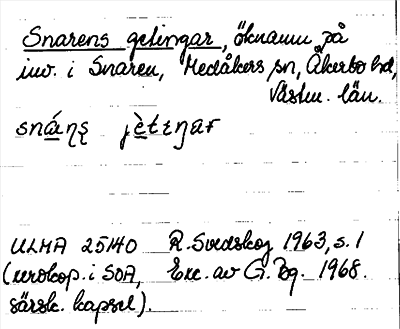 Snarens getingar, öknamn på
inv. i Snaren, Medåkers sn, Åkerbo hd,
Västm. län.
snáṇs jètiŋar
ULMA 25140 R. Svedskog 1963, s. 1
(xerokop. i SOA, Exc. av G. Bg. 1968.
särsk. kapsel).